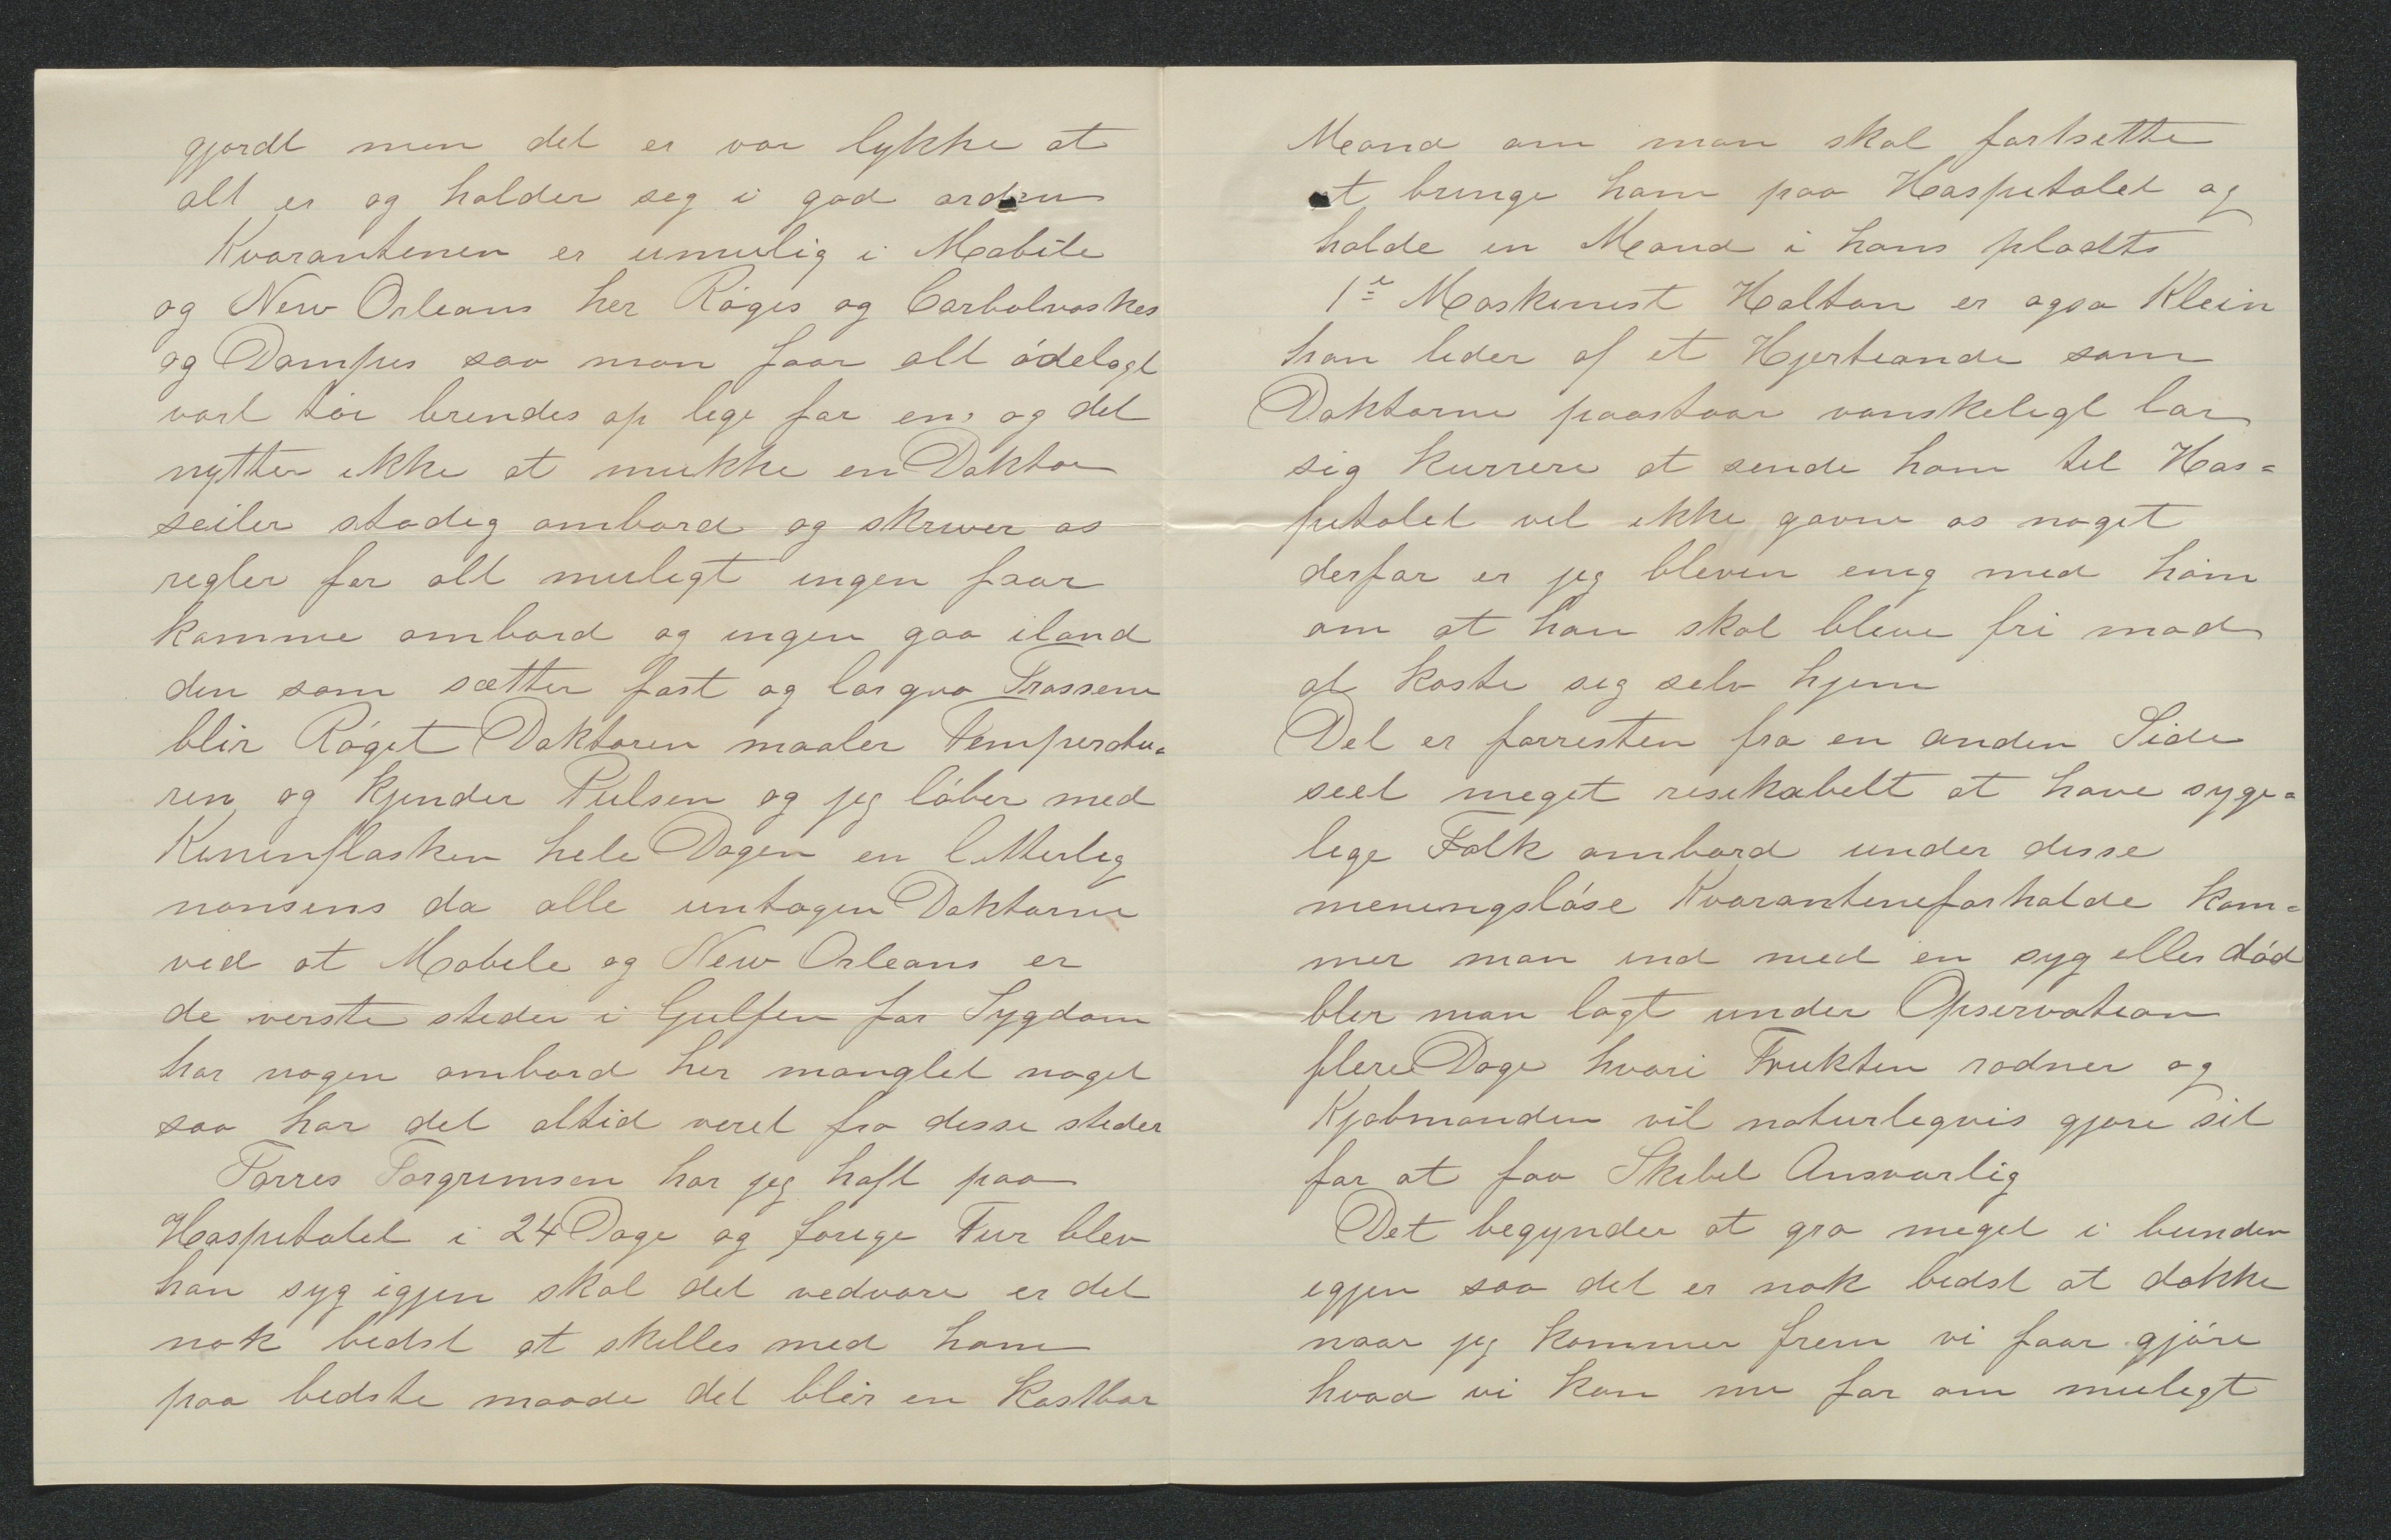 gjordt men det er vor lykke at
alt er og holder seg i god orden
Kvarantenen er umulig i Mobile
og New Orleans her Röges og Carbolvaskes
og Dampes saa man faar alt ödelagt
vort töi brendes op lige for en, og det
nytter ikke at mukke en Doktor
seiler stadig ombord og skriver os
regler for alt muligt ingen faar
komme ombord og ingen gaa iland
den som sætter fast og lar gaa Trossene
blir Röget Doktoren maaler Temperatu=
ren og Kjender Pulsen og jeg löber med
Kininflasken hele Dagen en litterlig
nonsens da alle untagen Doktorne
ved at Mobile og New Orleans er
de verste steder i Gulfen for Sygdom
har nogen ombord her manglet noget
saa har det altid veret fra disse steder
Torres Torgrimsen har jeg haft paa
Hospitalet i 24 Dage og forige Tur blev
han syg igjen skal det vedvare er det
nok bedst at skilles med ham
paa bedste maade det blir en Kostbar
Mand om man skal fortsette
at bringe ham paa Hospitalet og
holde en Mand i hans pladts
1ste Maskinist Haltan er ogsa Klein
han leder af et Hjerteonde som
Doktorne paastaar vanskeligt lar
sig kurrere at sende ham til Hos=
pitalet vil ikke gavne os noget
derfor er jeg bleven enig med ham
om at han skal blive fri mod
at koste seg selv hjem
Det er forresten fra en anden Side
seet meget risikabelt at have syge=
lige Folk ombord under disse
meningslöse Kvaranteneforholde kom=
mer man ind med en syg eller död
blir man lagt under Opservation
flere Dage hvori Frukten rodner og
Kjøbmanden vil naturligvis gjøre sit
for at faa Skibet Ansvarlig
Det begynder at gro meget i bunden
igjen saa det er nok bedst at dokke
naar jeg kommer frem vi faar gjöre
hvad vi kan nu for om muligt